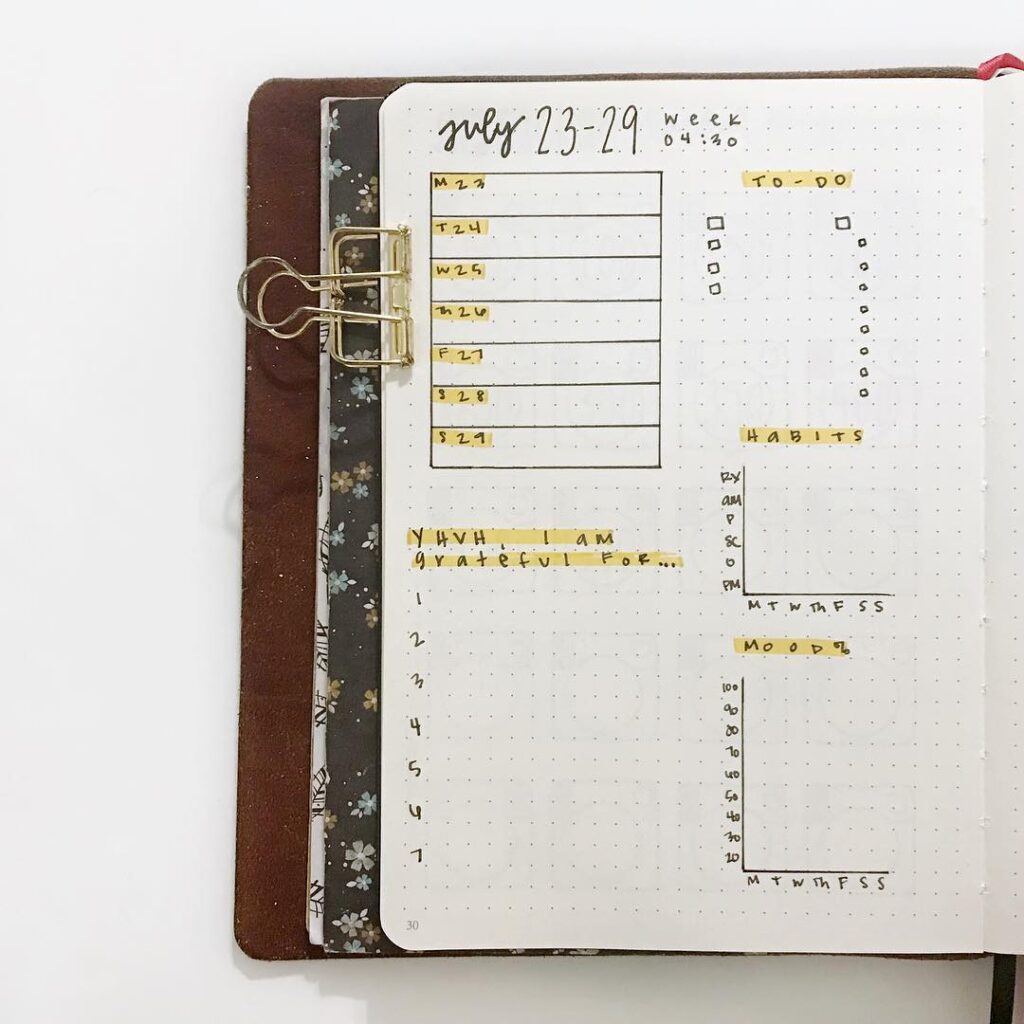 july 23-29 week
04:30
M 23
T 24
W 25
Th 26
F 27
S 28
S 29
TO-DO
HABITS
RX
AM
P
SC
O
PM
M T W Th F S S
YHVH, I am
grateful for...
1
2
3
4
5
6
7
MOOD%
100
90
80
70
60
50
40
30
20
M T W Th F S S
30